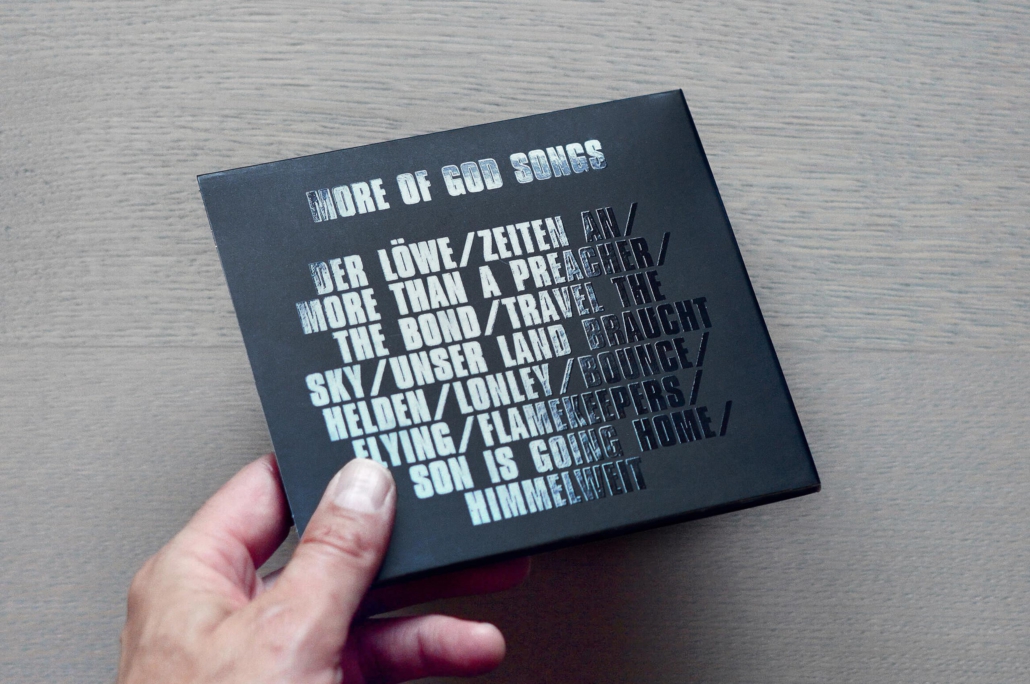 MORE OF GOD SONGS
DER LÖWE/ZEITEN AN/
MORE THAN A PREACHER/
THE BOND/TRAVEL THE
SKY/UNSER LAND BRAUCHT
HELDEN/LONLEY/BOUNCE/
FLYING/FLAMEKEEPERS/
SON IS GOING HOME/
HIMMELWEIT